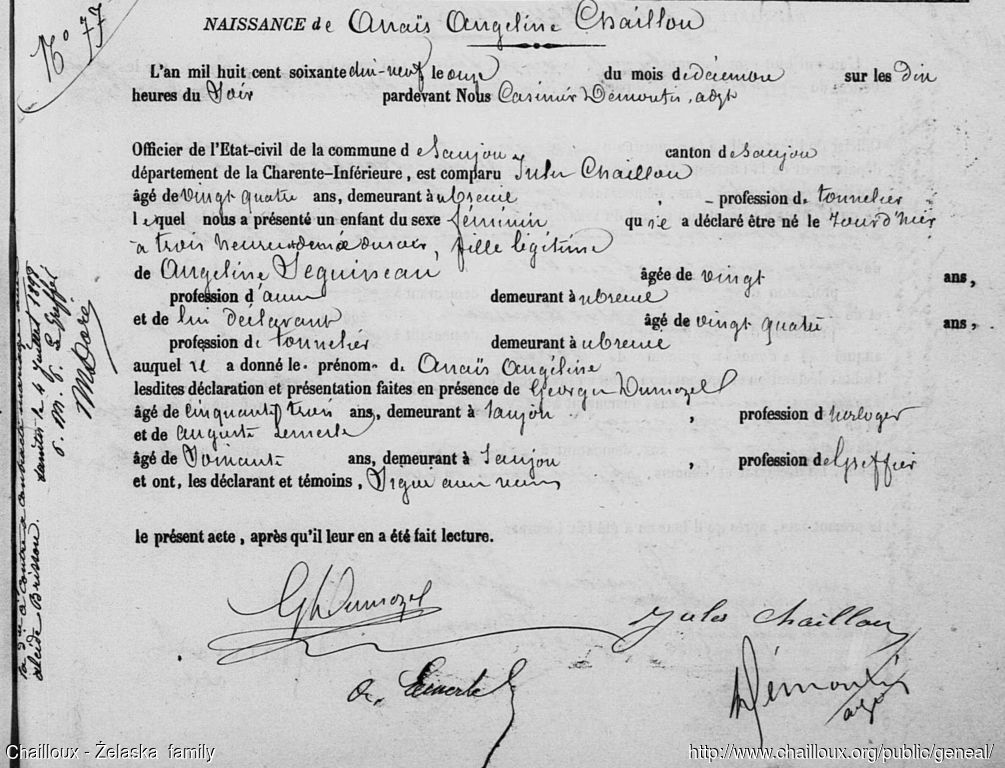 No 77
NAISSANCE de Anaïs Angeline Chaillou
L'an mil huit cent soixante dix-neuf le onze du mois de décembre sur les dix
heures du Soir pardevant Nous Casimir Demontis, adjt
Officier de l'Etat-civil de la commune de Saujon canton de Saujon
département de la Charente-Inférieure, est comparu Jules Chaillou
âgé de vingt quatre ans, demeurant à , profession de tonnelier
lequel nous a présenté un enfant du sexe féminin qu'il a déclaré être né le Jour d'hier
à trois heures et demie du soir, fille légitime
de Angeline Seguineau, âgée de vingt ans,
profession d' demeurant à
et de lui déclarant âgé de vingt quatre ans,
profession de tonnelier demeurant à
auquel il a donné le prénom de Anaïs Angéline
lesdites déclaration et présentation faites en présence de Georges Dumozel
âgé de cinquante trois ans, demeurant à Saujon, profession d'horloger
et de Auguste Lemerle
âgé de Soixante ans, demeurant à Saujon, profession de Greffier
et ont, les déclarant et témoins, Signé avec nous
le présent acte, après qu'il leur en a été fait lecture.
GhDumozel
Jules Chaillou
A. Lemerle
Démontis
adjt
a contracté mariage avec
Alcide Brisson. le 4 juillet 1898
P. le Greffier
Chailloux - Želaska family
http://www.chailloux.org/public/geneal/